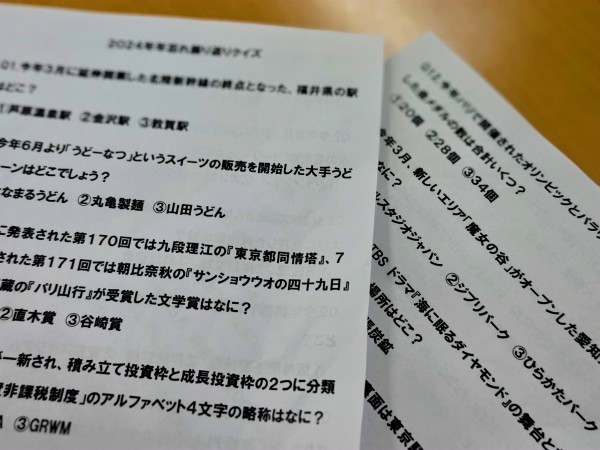 2024年年忘れ振り返りクイズ
Q1.今年3月に延伸開業した北陸新幹線の終点となった、福井県の駅
はどこ?
①芦原温泉駅 ②金沢駅 ③敦賀駅
今年6月より「うどーなつ」というスイーツの販売を開始した大手うど
ーンはどこでしょう?
なまるうどん ②丸亀製麺 ③山田うどん
に発表された第170回では九段理江の『東京都同情塔』、7
された第171回では朝比奈秋の『サンショウウオの四十九日』
蔵の『バリ山行』が受賞した文学賞はなに?
②直木賞 ③谷崎賞
が一新され、積み立て投資枠と成長投資枠の2つに分類
非課税制度」のアルファベット4文字の略称はなに?
A ③GRWM
Q12.今年パリで開催されたオリンピックとパラ
した金メダルの数は合計いくつ?
①20個 ②28個 ③34個
今年3月、新しいエリア「魔女の谷」がオープンした愛知
なに?
ルスタジオジャパン ②ジブリパーク ③ひらかたパーク
TBSドラマ『海に眠るダイヤモンド』の舞台と
場所はどこ?
炭鉱
面は東京駅